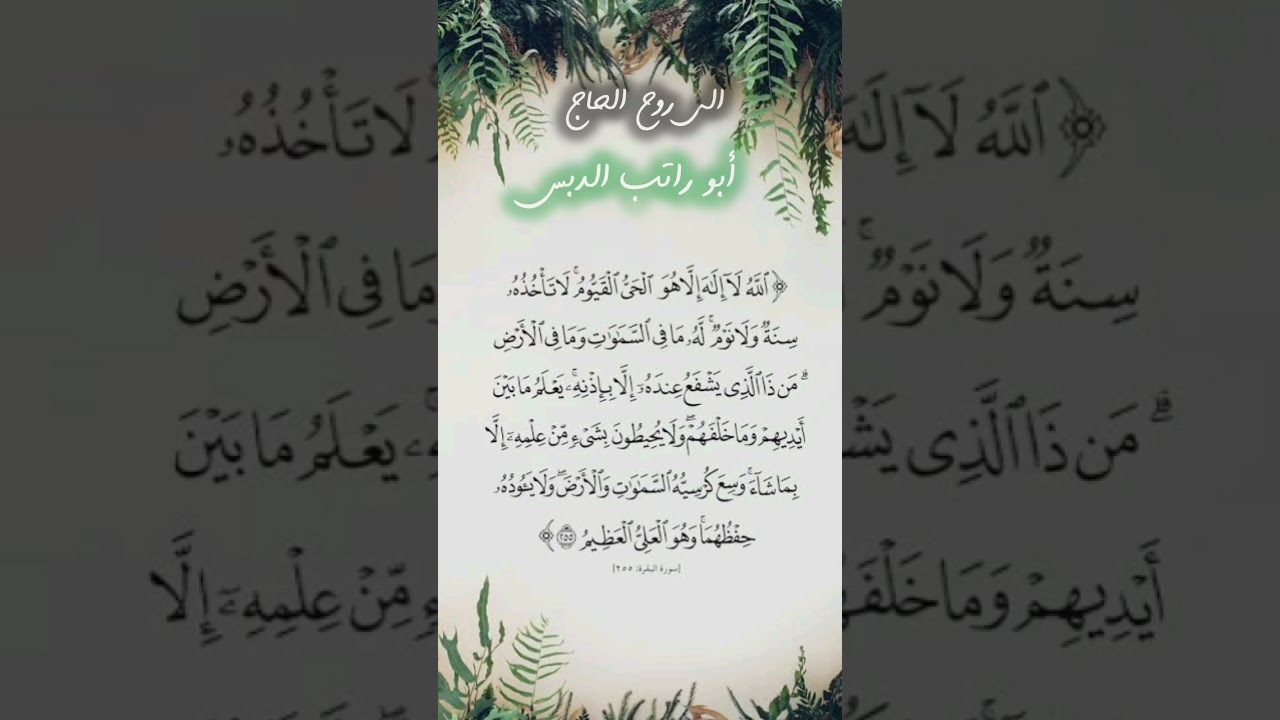 الى روح الحاج
أبو راتب الدبس
﴿ٱللَّهُ لَآ إِلَٰهَ إِلَّا هُوَ ٱلْحَىُّ ٱلْقَيُّومُ ۚ لَا تَأْخُذُهُۥ
سِنَةٌ وَلَا نَوْمٌ ۚ لَّهُۥ مَا فِى ٱلسَّمَٰوَٰتِ وَمَا فِى ٱلْأَرْضِ
ۗ مَن ذَا ٱلَّذِى يَشْفَعُ عِندَهُۥٓ إِلَّا بِإِذْنِهِۦ ۚ يَعْلَمُ مَا بَيْنَ
أَيْدِيهِمْ وَمَا خَلْفَهُمْ ۖ وَلَا يُحِيطُونَ بِشَىْءٍ مِّنْ عِلْمِهِۦٓ إِلَّا
بِمَا شَآءَ ۚ وَسِعَ كُرْسِيُّهُ ٱلسَّمَٰوَٰتِ وَٱلْأَرْضَ ۖ وَلَا يَـُٔودُهُۥ
حِفْظُهُمَا ۚ وَهُوَ ٱلْعَلِىُّ ٱلْعَظِيمُ ٢٥٥﴾
[سورة البقرة: ٢٥٥]